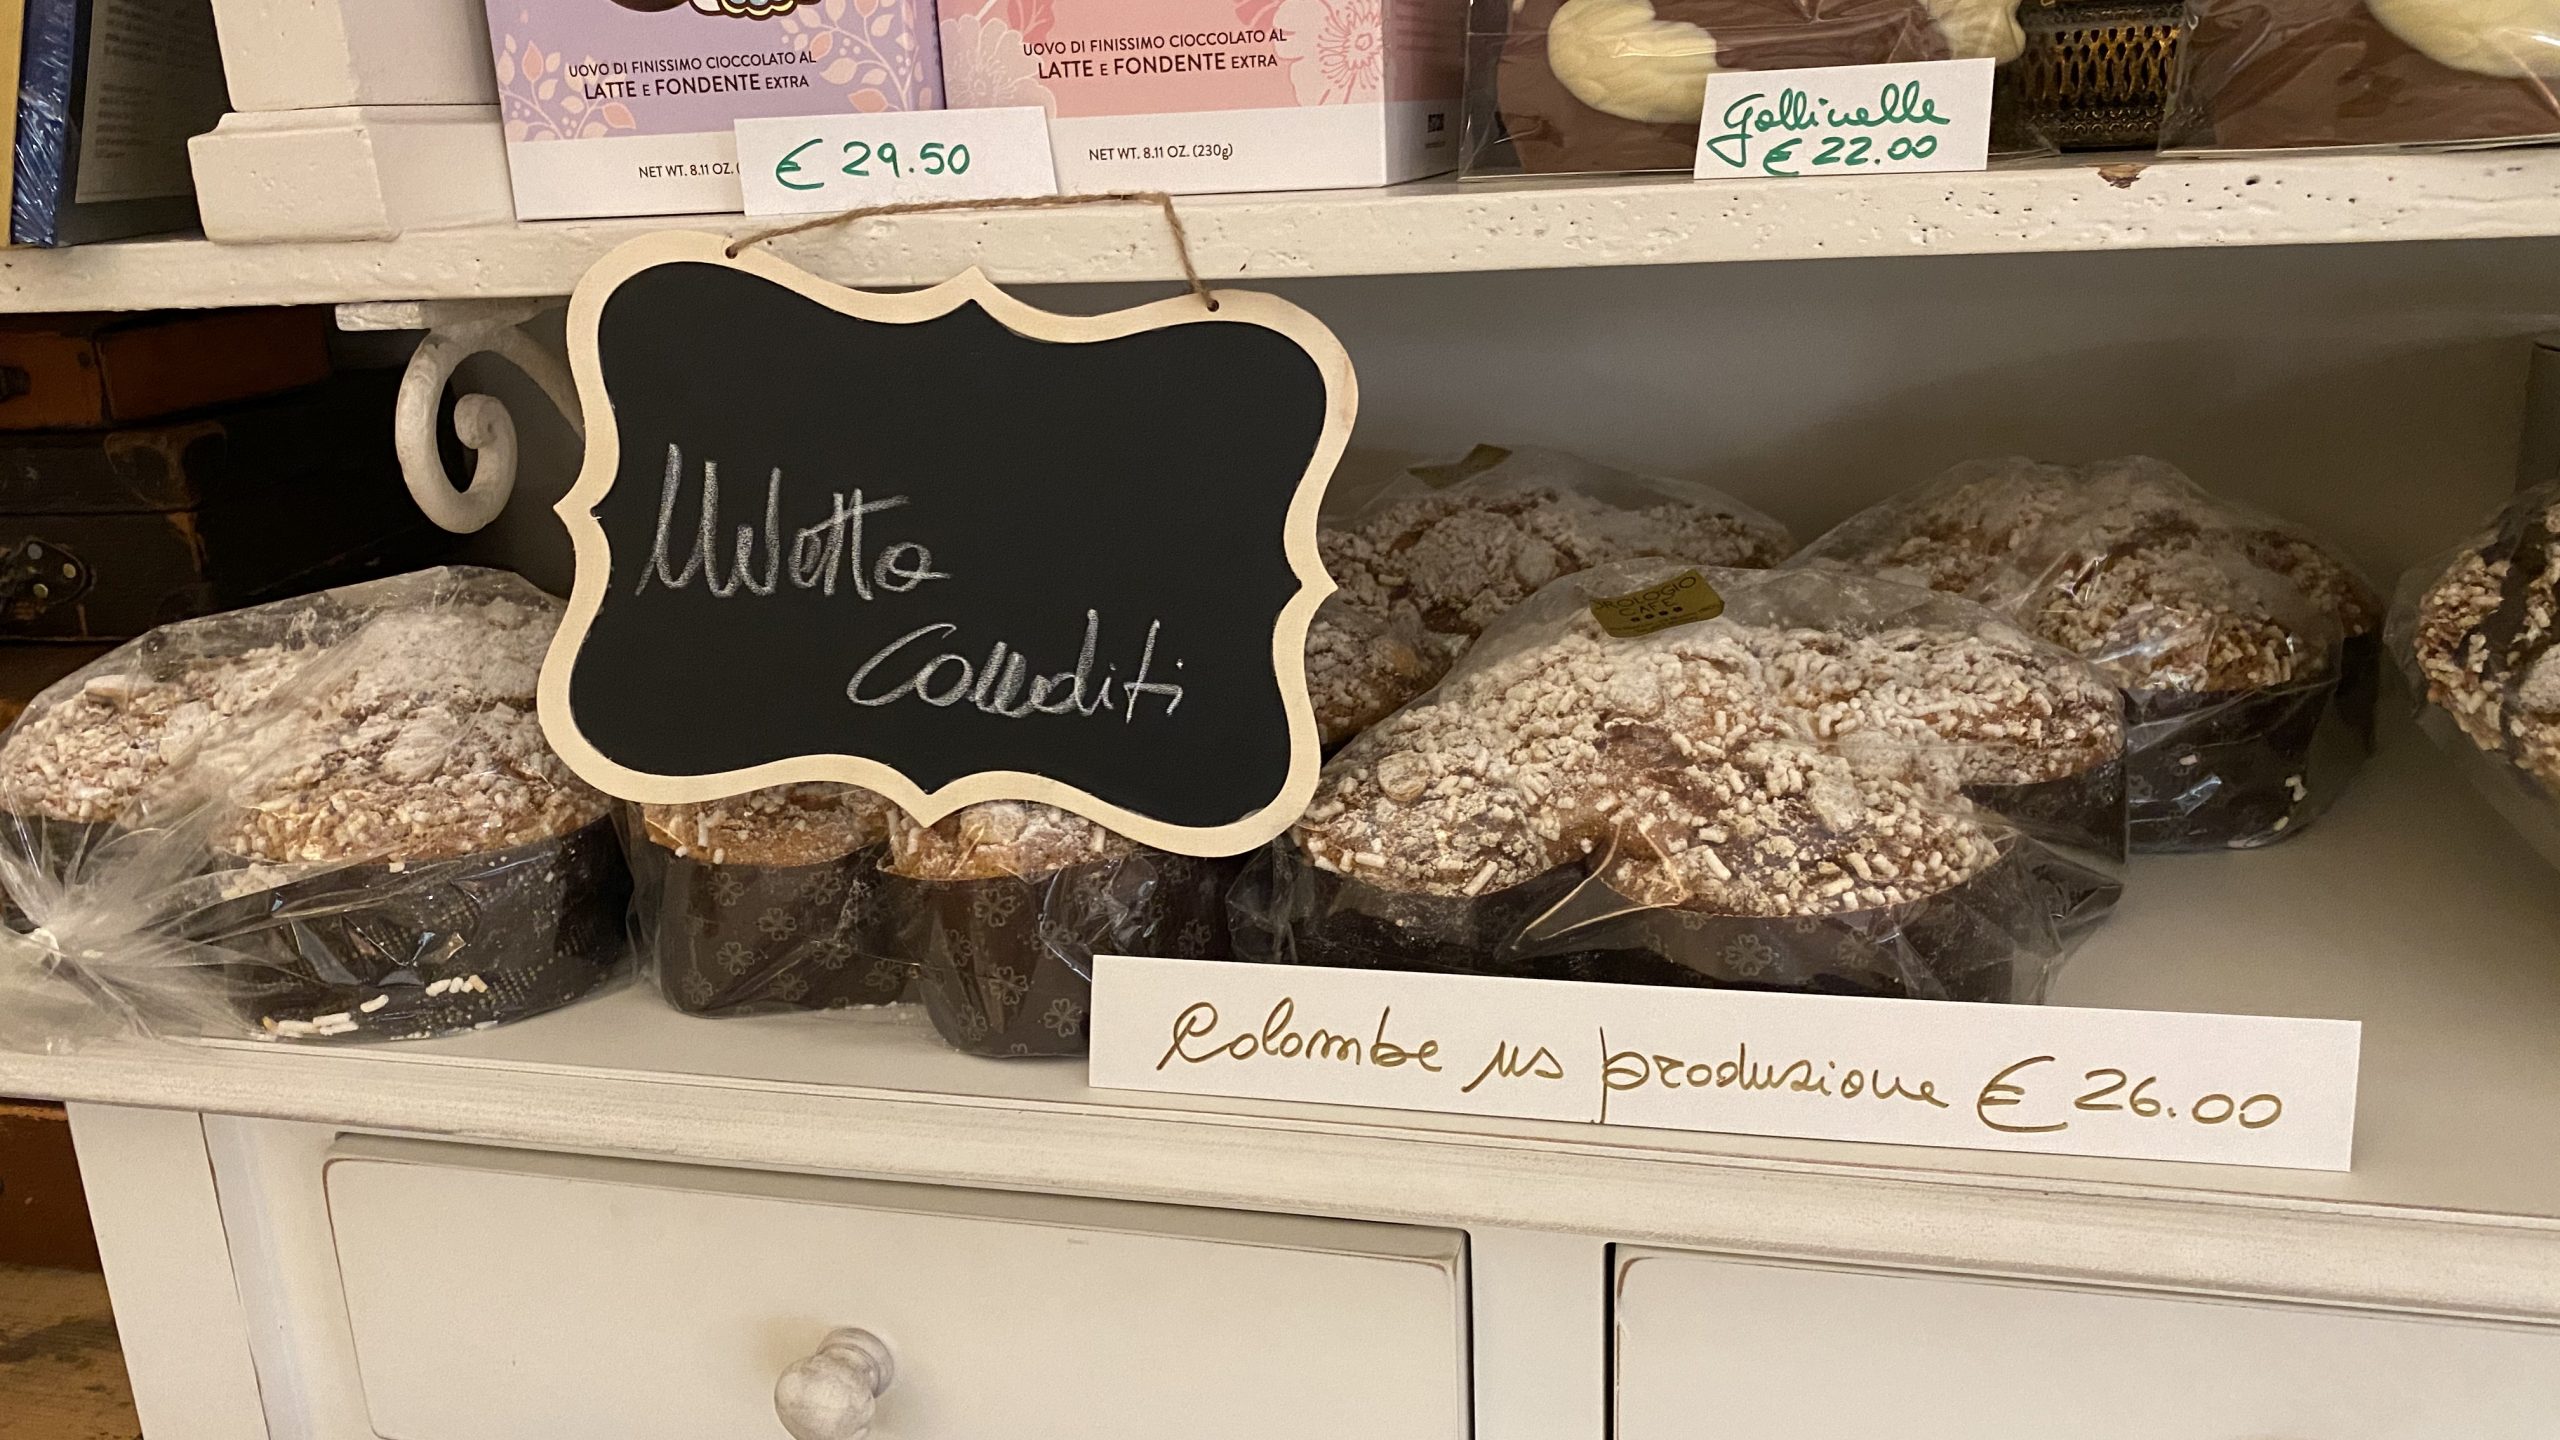 UOVO DI FINISSIMO CIOCCOLATO AL
LATTE E FONDENTE EXTRA
NET WT. 8.11 OZ. (
€ 29.50
UOVO DI FINISSIMO CIOCCOLATO AL
LATTE E FONDENTE EXTRA
NET WT. 8.11 OZ. (230g)
Gallinelle
€ 22.00
Canditi
OROLOGIO
CAFÈ
Colombe ns produzione € 26.00